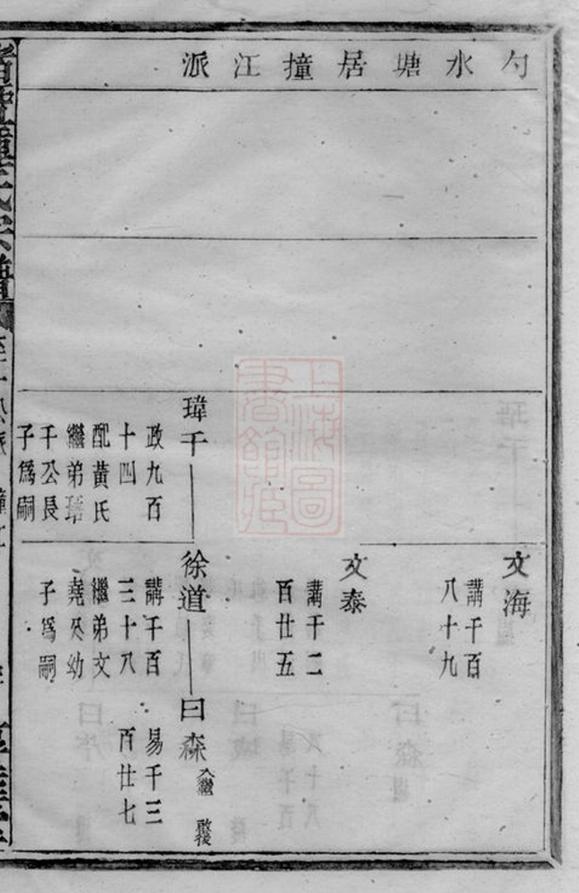 勺水塘居撞江派
文海
講千百
八十九
文泰
講千二
百廿五
瑋千
政九百
十四
配黃氏
繼弟琣
千公長
子爲嗣
徐道
講千百
三十八
繼弟文
堯次幼
子爲嗣
曰森
入繼
啟後
易千三
百廿七
上海圖
書館藏